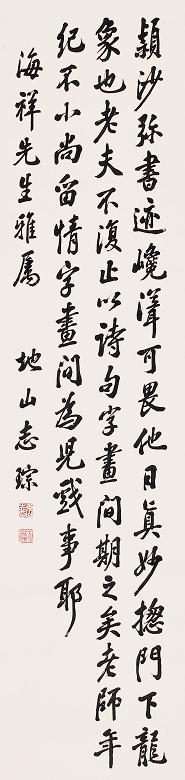 穎沙弥書迹巉聳可畏他日眞妙揔門下龍
象也老夫不復止以詩句字畫間期之矣老師年
紀不小尚留情字畫間為児戲事耶
海祥先生雅属　地山志琮